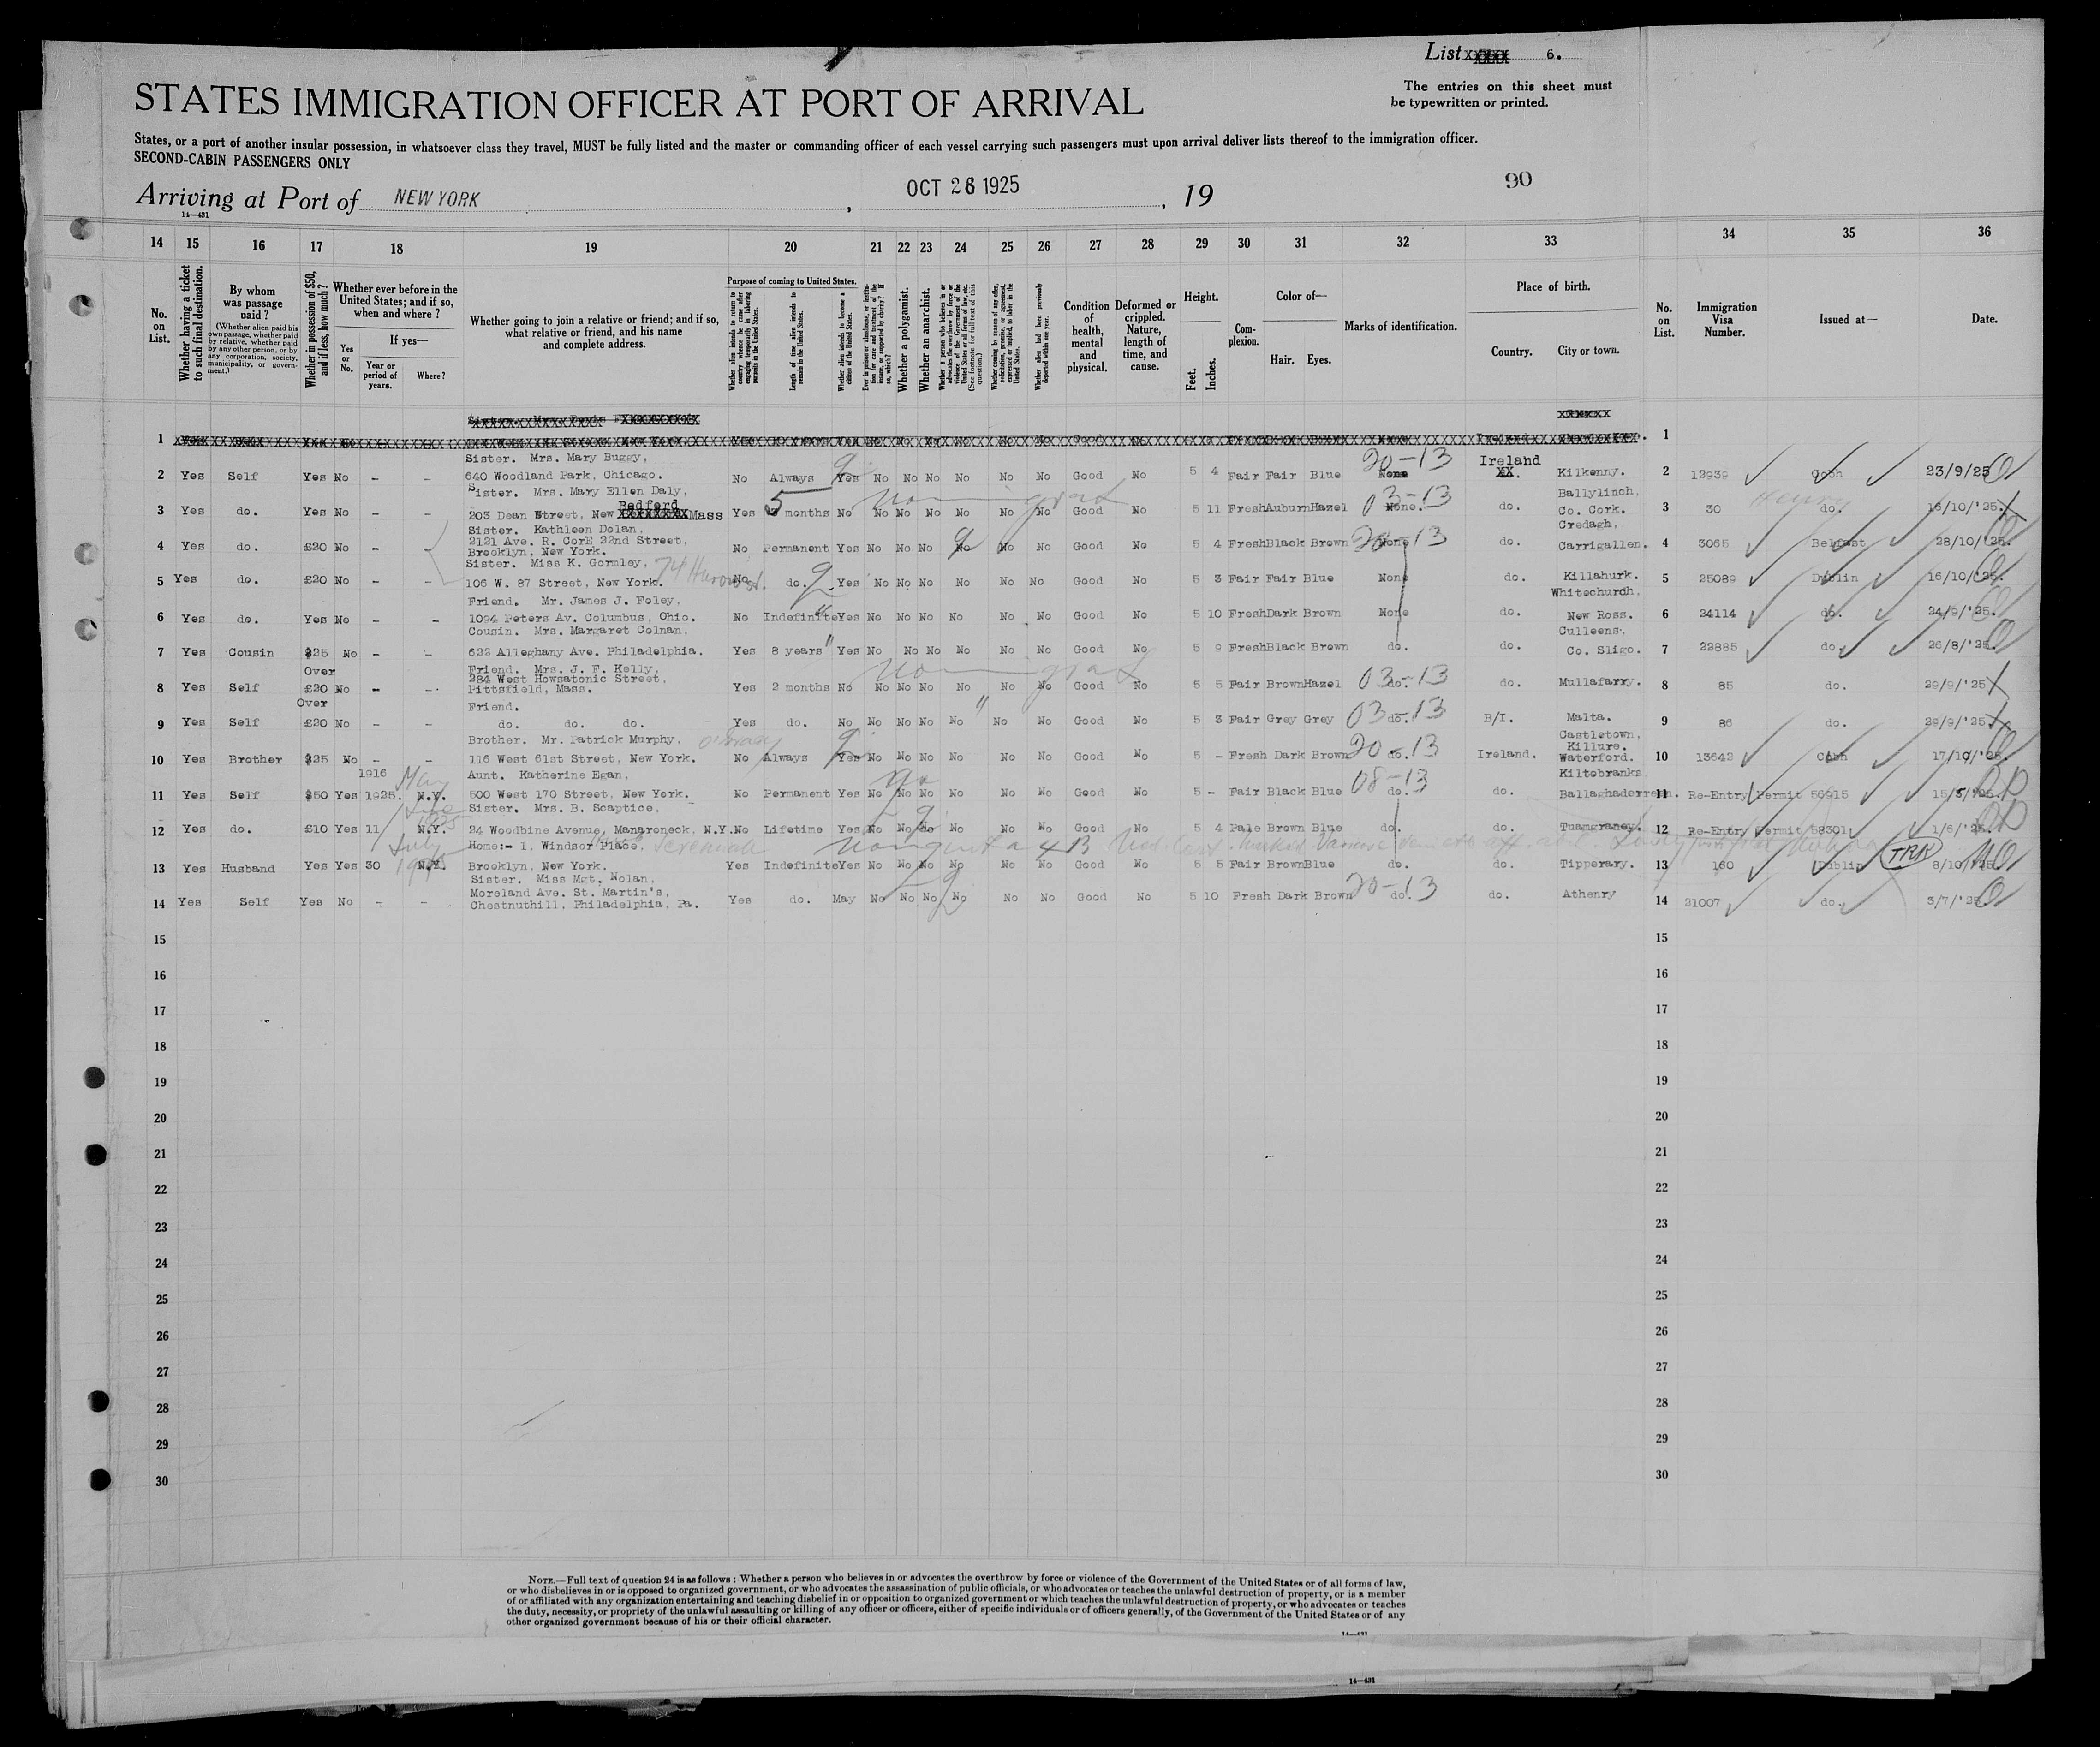 List XXXXX 6.
The entries on this sheet must
be typewritten or printed.
STATES IMMIGRATION OFFICER AT PORT OF ARRIVAL
States, or a port of another insular possession, in whatsoever class they travel, MUST be fully listed and the master or commanding officer of each vessel carrying such passengers must upon arrival deliver lists thereof to the immigration officer.
SECOND-CABIN PASSENGERS ONLY
Arriving at Port of NEW YORK, OCT 26 1925, 19
90
14—431
14 15 16 17 18 19 20 21 22 23 24 25 26 27 28 29 30 31 32 33 34 35 36
No. on List.
Whether having a ticket to such final destination.
By whom was passage paid?
(Whether alien paid his own passage, whether paid by relative, whether paid by any other person, or by any corporation, society, municipality, or government.)
Whether in possession of $50, and if less, how much?
Whether ever before in the United States; and if so, when and where?
Yes or No.
If yes—
Year or period of years.
Where?
Whether going to join a relative or friend; and if so, what relative or friend, and his name and complete address.
Purpose of coming to United States.
Whether alien intends to return to country whence he came after engaging temporarily in laboring pursuits in the United States.
Length of time alien intends to remain in the United States.
Whether alien intends to become a citizen of the United States.
Ever in prison or almshouse, or institution for care and treatment of the insane, or supported by charity? If so, which?
Whether a polygamist.
Whether an anarchist.
Condition of health, mental and physical.
Deformed or crippled. Nature, length of time, and cause.
Height.
Feet. Inches.
Complexion.
Color of—
Hair. Eyes.
Marks of identification.
Place of birth.
Country. City or town.
No. on List.
Immigration Visa Number.
Issued at—
Date.
1 1
Sister. Mrs. Mary Buggy,
2 Yes Self Yes No - - 640 Woodland Park, Chicago. No Always Yes No No No No No No Good No 5 4 Fair Fair Blue None 20-13 Ireland XX. Kilkenny. 2 12939 Cobh 23/9/25
Sister. Mrs. Mary Ellen Daly, Ballylinch,
3 Yes do. Yes No - - 203 Dean Street, New Bedford Mass Yes 5 months No No No No No No No Good No 5 11 Fresh Auburn Hazel None. 03-13 do. Co. Cork. 3 30 do. 16/10/'25.
Sister. Kathleen Dolan, Credagh,
2121 Ave. R. CorE 22nd Street,
4 Yes do. £20 No - - Brooklyn, New York. No Permanent Yes No No No No No No Good No 5 4 Fresh Black Brown None 20-13 do. Carrigallen. 4 3065 Belfast 28/10/'25.
Sister. Miss K. Gormley,
5 Yes do. £20 No - - 106 W. 87 Street, New York. No do. Yes No No No No No No Good No 5 3 Fair Fair Blue None do. Killahurk. 5 25089 Dublin 16/10/'25.
Friend. Mr. James J. Foley, Whitechurch,
6 Yes do. Yes No - - 1094 Peters Av. Columbus, Ohio. No Indefinite Yes No No No No No No Good No 5 10 Fresh Dark Brown None do. New Ross. 6 24114 do. 24/9/'25.
Cousin. Mrs. Margaret Colnan, Culleens,
7 Yes Cousin $25 No - - 622 Alleghany Ave. Philadelphia. Yes 8 years Yes No No No No No No Good No 5 9 Fresh Black Brown do. do. Co. Sligo. 7 22885 do. 26/8/'25.
Over Friend. Mrs. J. F. Kelly,
284 West Howsatonic Street,
8 Yes Self £20 No - - Pittsfield, Mass. Yes 2 months No No No No No No No Good No 5 5 Fair Brown Hazel do. 03-13 do. Mullafarry. 8 85 do. 29/9/'25
Over Friend.
9 Yes Self £20 No - - do. do. do. Yes do. No No No No No No No Good No 5 3 Fair Grey Grey do. 03-13 B/I. Malta. 9 86 do. 29/9/'25.
Brother. Mr. Patrick Murphy, Castletown,
Killure.
10 Yes Brother $25 No - - 116 West 61st Street, New York. No Always Yes No No No No No No Good No 5 - Fresh Dark Brown do. 20-13 Ireland. Waterford. 10 13642 Cobh 17/10/'25.
1916 May Aunt. Katherine Egan, Kiltobranks
11 Yes Self $50 Yes 1925. N.Y. 500 West 170 Street, New York. No Permanent Yes No No No No No No Good No 5 - Fair Black Blue do. 08-13 do. Ballaghaderreen. 11 Re-Entry Permit 56915 15/5/'25.
June 1925 Sister. Mrs. B. Scaptice,
12 Yes do. £10 Yes 11 N.Y. 24 Woodbine Avenue, Mamaroneck, N.Y. No Lifetime Yes No No do No No No Good No 5 4 Pale Brown Blue do. do. Tuamgraney. 12 Re-Entry Permit 58301 1/6/'25.
July Home:- 1, Windsor Place, Jeremiah
13 Yes Husband Yes Yes 30 N.Y. Brooklyn, New York. Yes Indefinite Yes No No No No No No Good No 5 5 Fair Brown Blue do. do. Tipperary. 13 160 Dublin 8/10/'25
Sister. Miss Mgt. Nolan,
Moreland Ave. St. Martin's,
14 Yes Self Yes No - - Chestnuthill, Philadelphia, Pa. Yes do. May No No No No No No Good No 5 10 Fresh Dark Brown do. 20-13 do. Athenry 14 21007 do. 3/7/'25
15 15
16 16
17 17
18 18
19 19
20 20
21 21
22 22
23 23
24 24
25 25
26 26
27 27
28 28
29 29
30 30
NOTE.—Full text of question 24 is as follows: Whether a person who believes in or advocates the overthrow by force or violence of the Government of the United States or of all forms of law,
or who disbelieves in or is opposed to organized government, or who advocates the assassination of public officials, or who advocates or teaches the unlawful destruction of property, or is a member
of or affiliated with any organization entertaining and teaching disbelief in or opposition to organized government or which teaches the unlawful destruction of property, or who advocates or teaches
the duty, necessity, or propriety of the unlawful assaulting or killing of any officer or officers, either of specific individuals or of officers generally, of the Government of the United States or of any
other organized government because of his or their official character.
14—431
14—431